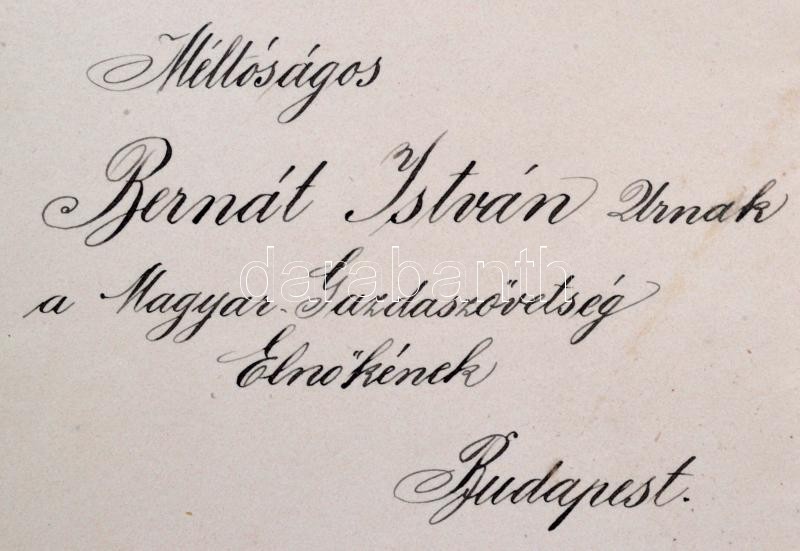 Méltóságos
Bernát István Urnak
darabanth
a Magyar Gazdaszövetség
Elnőkének
Budapest.